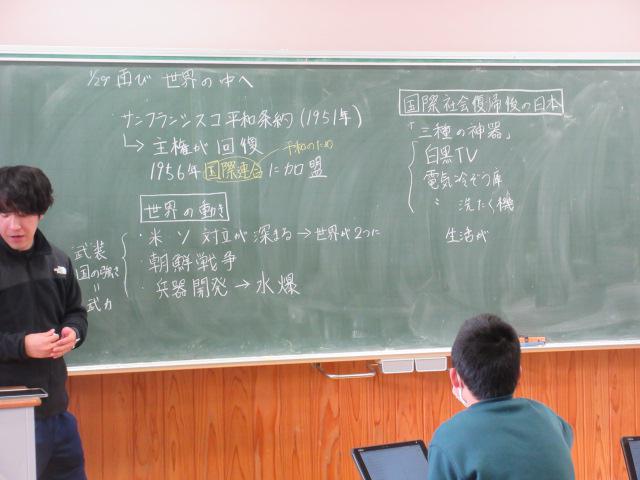 1/29 再び 世界の中へ
・サンフランシスコ平和条約(1951年)
↳主権が回復
平和のため
1956年国際連合に加盟
世界の動き
・米ソ対立が深まる→世界が2つに
・朝鮮戦争
・兵器開発→水爆
武装
国の強さ
=
武力
国際社会復帰後の日本
「三種の神器」
白黒TV
電気冷ぞう庫
〃 洗たく機
生活が